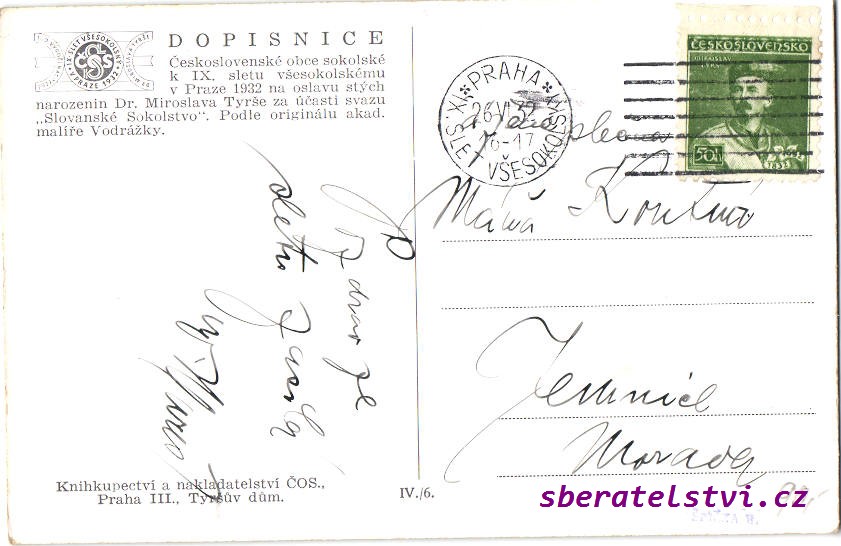 DOPISNICE
Československé obce sokolské
k IX. sletu všesokolskému
v Praze 1932 na oslavu stých
narozenin Dr. Miroslava Tyrše za účasti svazu
„Slovanské Sokolstvo“. Podle originálu akad.
malíře Vodrážky.
IX. SLET VŠESOKOLSKÝ
V PRAZE 1932
ČOS
PRAHA
26 VI 32
16-17
IX. SLET VŠESOKOLSKÝ
ČESKOSLOVENSKO
50h
1832
Máňa
Jemnice
Morava
Zdrav ze
sletu
Knihkupectví a nakladatelství ČOS.,
Praha III., Tyršův dům.
IV./6.
sberatelstvi.cz